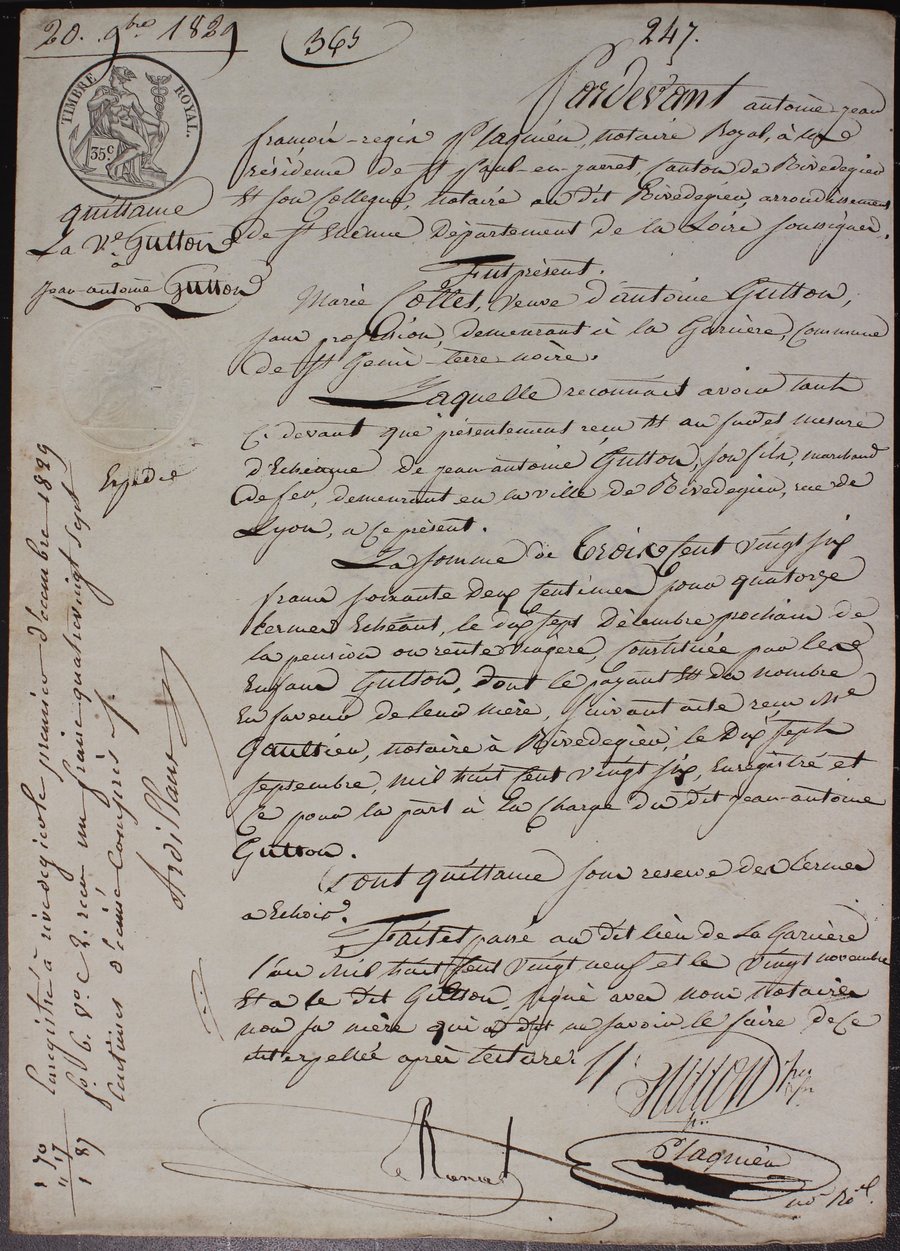 20. 9bre 1829
365
247.
TIMBRE ROYAL.
35c
quittance
La Ve Gutton
à
Jean-antoine Gutton
Expédié
Pardevant antoine-jean
françois-regis Plaquién, notaire Royal, à la
résidence de St Paul-en-jarret, Canton de Rivedegier
Et son Collegue, notaire au dit Rivedegier, arrondissement
de St Etienne Département de la Loire soussignés.
Fut présent.
Marie Collet, veuve d'antoine Gutton,
sans profession, demeurant à la Garnière, Commune
de St Genis-terre-noire.
Laquelle reconnait avoir tant
Ci devant que présentement reçu Et au fur et mesure
d'Echéance de jean-antoine Gutton, son fils, marchand
de fer, demeurant en la ville de Rivedegier, rue de
Lyon, à ce présent.
La somme de Trois Cent vingt six
francs soixante deux Centimes pour quatorze
termes Echéant, le dix sept Décembre prochain de
la pension ou rente viagere, Constituée par les
Enfans Gutton, dont le payant Est du nombre
En faveur de leur mère, suivant acte reçu Me
Gaultier, notaire à Rivedegier, le Dix Sept
septembre, mil huit Cent vingt six, Enregistré et
Ce pour la part à la Charge du dit jean-antoine
Gutton.
Dont quittance sous reserve des termes
a Echoir.
Fait et passé au dit lieu de La Garnière
l'an mil huit Cent vingt neuf et le vingt novembre
Et a le dit Gutton, signé avec nous Notaires
non sa mère qui a dit ne savoir le faire de ce
interpellée après lecture.
Gutton
Plaquién
no. Ral.
Enregistré à rivedegier le premier décembre 1829
fo 6. Vo C 2. reçu un franc quatrevingt sept
Centimes décime Compris
Ardillane
1 70
" 17
1 87